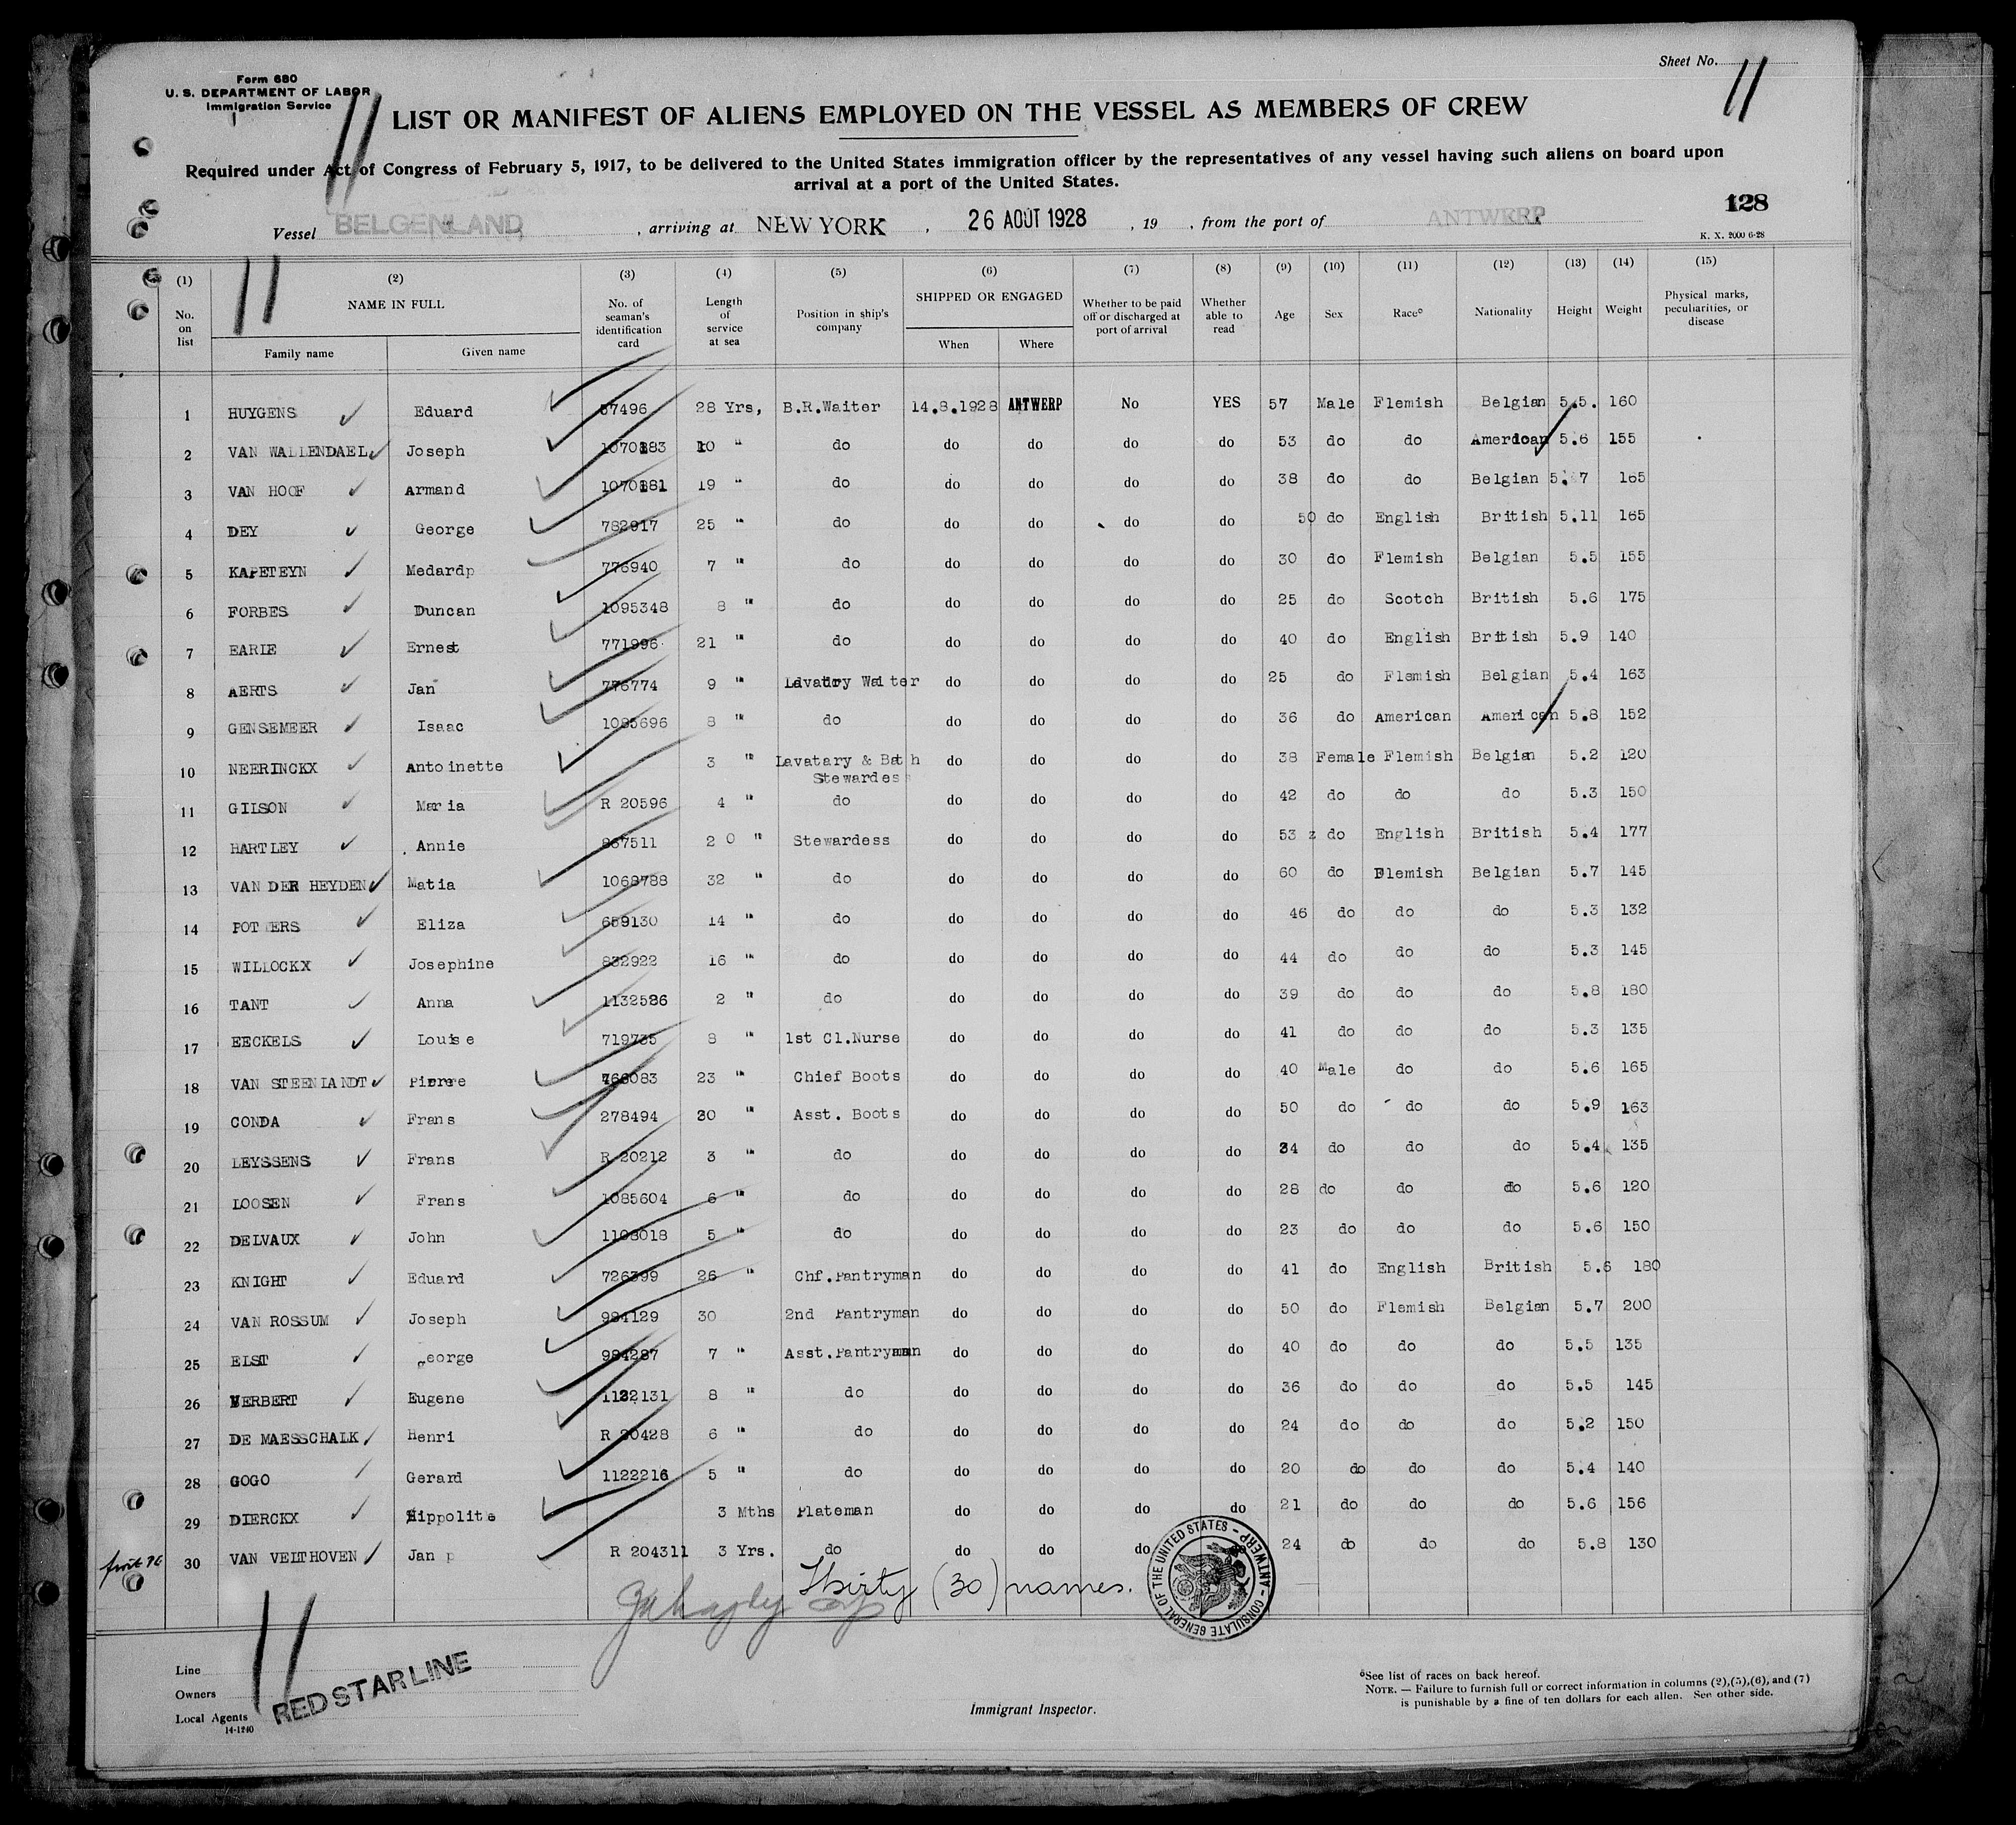 Sheet No. 11
Form 680
U. S. DEPARTMENT OF LABOR
Immigration Service
11
LIST OR MANIFEST OF ALIENS EMPLOYED ON THE VESSEL AS MEMBERS OF CREW
Required under Act of Congress of February 5, 1917, to be delivered to the United States immigration officer by the representatives of any vessel having such aliens on board upon
arrival at a port of the United States.
128
Vessel BELGENLAND, arriving at NEW YORK, 26 AOUT 1928, 19 , from the port of ANTWERP
K. X. 2000 6-28
11
(1) (2) (3) (4) (5) (6) (7) (8) (9) (10) (11) (12) (13) (14) (15)
No. on list NAME IN FULL Family name Given name No. of seaman's identification card Length of service at sea Position in ship's company SHIPPED OR ENGAGED When Where Whether to be paid off or discharged at port of arrival Whether able to read Age Sex Race° Nationality Height Weight Physical marks, peculiarities, or disease
1 HUYGENS Eduard 57496 28 Yrs, B.R.Waiter 14.8.1928 ANTWERP No YES 57 Male Flemish Belgian 5.5. 160
2 VAN WALLENDAEL Joseph 1070183 10 " do do do do do 53 do do American 5.6 155
3 VAN HOOF Armand 1070181 19 " do do do do do 38 do do Belgian 5.7 165
4 DEY George 782917 25 " do do do do do 50 do English British 5.11 165
5 KAPETEYN Medardp 776940 7 " do do do do do 30 do Flemish Belgian 5.5 155
6 FORBES Duncan 1095348 8 " do do do do do 25 do Scotch British 5.6 175
7 EARIE Ernest 771996 21 " do do do do do 40 do English British 5.9 140
8 AERTS Jan 776774 9 " Lavatry Waiter do do do do 25 do Flemish Belgian 5.4 163
9 GENSEMEER Isaac 1085696 8 " do do do do do 36 do American American 5.8 152
10 NEERINCKX Antoinette 3 " Lavatary & Bath Stewardess do do do do 38 Female Flemish Belgian 5.2 120
11 GILSON Maria R 20596 4 " do do do do do 42 do do do 5.3 150
12 HARTLEY Annie 867511 2 0 " Stewardess do do do do 53 z do English British 5.4 177
13 VAN DER HEYDEN Matia 1068788 32 " do do do do do 60 do Flemish Belgian 5.7 145
14 POTTERS Eliza 659130 14 " do do do do do 46 do do do 5.3 132
15 WILLOCKX Josephine 832922 16 " do do do do do 44 do do do 5.3 145
16 TANT Anna 1132586 2 " do do do do do 39 do do do 5.8 180
17 EECKELS Louise 719735 8 " 1st Cl.Nurse do do do do 41 do do do 5.3 135
18 VAN STEENLANDT Pierre 766083 23 " Chief Boots do do do do 40 Male do do 5.6 165
19 CONDA Frans 278494 30 " Asst. Boots do do do do 50 do do do 5.9 163
20 LEYSSENS Frans R 20212 3 " do do do do do 34 do do do 5.4 135
21 LOOSEN Frans 1085604 6 " do do do do do 28 do do do 5.6 120
22 DELVAUX John 1108018 5 " do do do do do 23 do do do 5.6 150
23 KNIGHT Eduard 726399 26 " Chf.Pantryman do do do do 41 do English British 5.6 180
24 VAN ROSSUM Joseph 984129 30 2nd Pantryman do do do do 50 do Flemish Belgian 5.7 200
25 ELST George 984287 7 " Asst.Pantryman do do do do 40 do do do 5.5 135
26 VERBERT Eugene 1122131 8 " do do do do do 36 do do do 5.5 145
27 DE MAESSCHALK Henri R 20428 6 " do do do do do 24 do do do 5.2 150
28 GOGO Gerard 1122216 5 " do do do do do 20 do do do 5.4 140
29 DIERCKX Hippolite 3 Mths Plateman do do do do 21 do do do 5.6 156
30 VAN VELTHOVEN Jan p R 204311 3 Yrs. do do do do 24 do do do 5.8 130
Thirty (30) names.
CONSULATE GENERAL OF THE UNITED STATES - ANTWERP -
11
Line
Owners
Local Agents
14-1240
RED STAR LINE
Immigrant Inspector.
°See list of races on back hereof.
NOTE. — Failure to furnish full or correct information in columns (2),(5),(6), and (7)
is punishable by a fine of ten dollars for each alien. See other side.